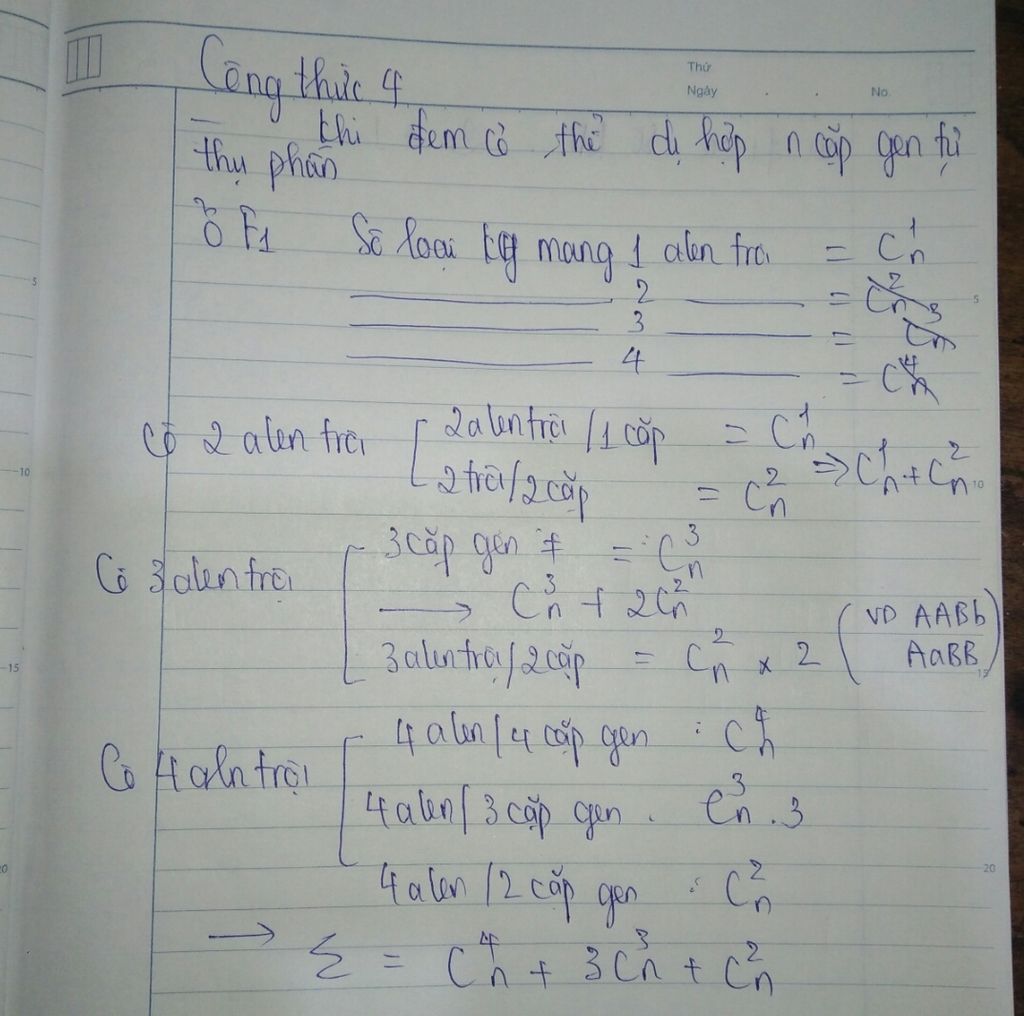 Công thức 4
Thứ
Ngày . . No.
– Khi đem cơ thể dị hợp n cặp gen tự
thụ phấn
Ở F1 Số loại KG mang 1 alen trội = C_n^1
2 = C_n^2
3 = C_n^3
4 = C_n^4
Có 2 alen trội [ 2 alen trội / 1 cặp = C_n^1
2 trội / 2 cặp = C_n^2 => C_n^1 + C_n^2
Có 3 alen trội [ 3 cặp gen ≠ = C_n^3
→ C_n^3 + 2C_n^2
3 alen trội / 2 cặp = C_n^2 x 2 (VD AABb
AaBB)
Có 4 aln trội [ 4 alen / 4 cặp gen : C_n^4
4 alen / 3 cặp gen . C_n^3 . 3
4 alen / 2 cặp gen : C_n^2
→ Σ = C_n^4 + 3C_n^3 + C_n^2
5
10
15
20
5
10
15
20